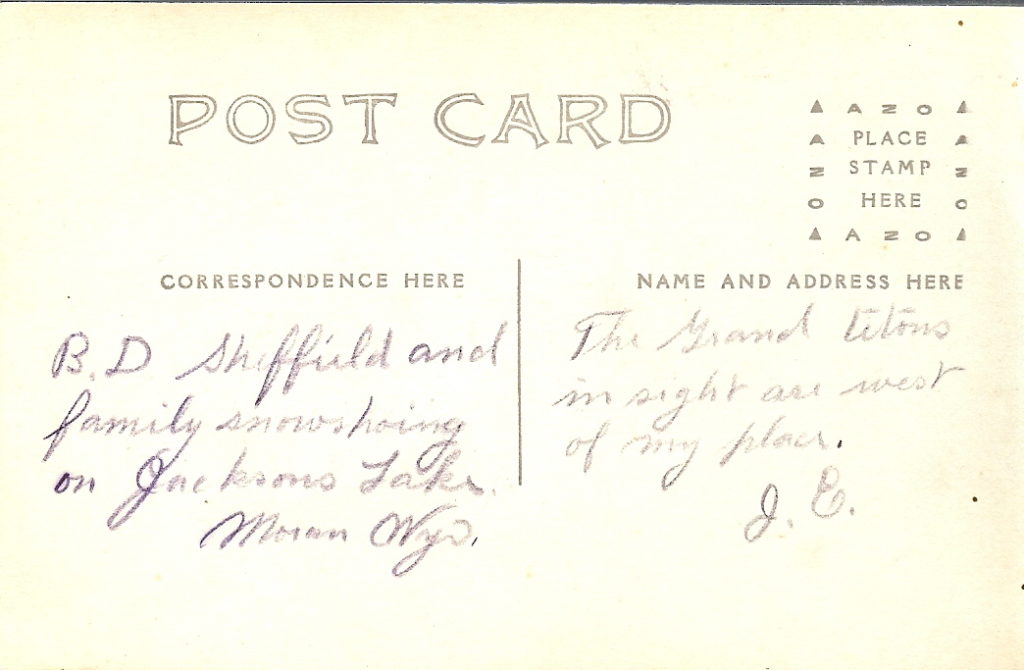 POST CARD
▲ AZO ▲
A PLACE A
Z STAMP Z
O HERE O
▲ AZO ▲
CORRESPONDENCE HERE
B. D Sheffield and
family snowshoing
on Jacksons Lake.
Moran Wyo.
NAME AND ADDRESS HERE
The Grand tetons
in sight are west
of my place.
J. E.